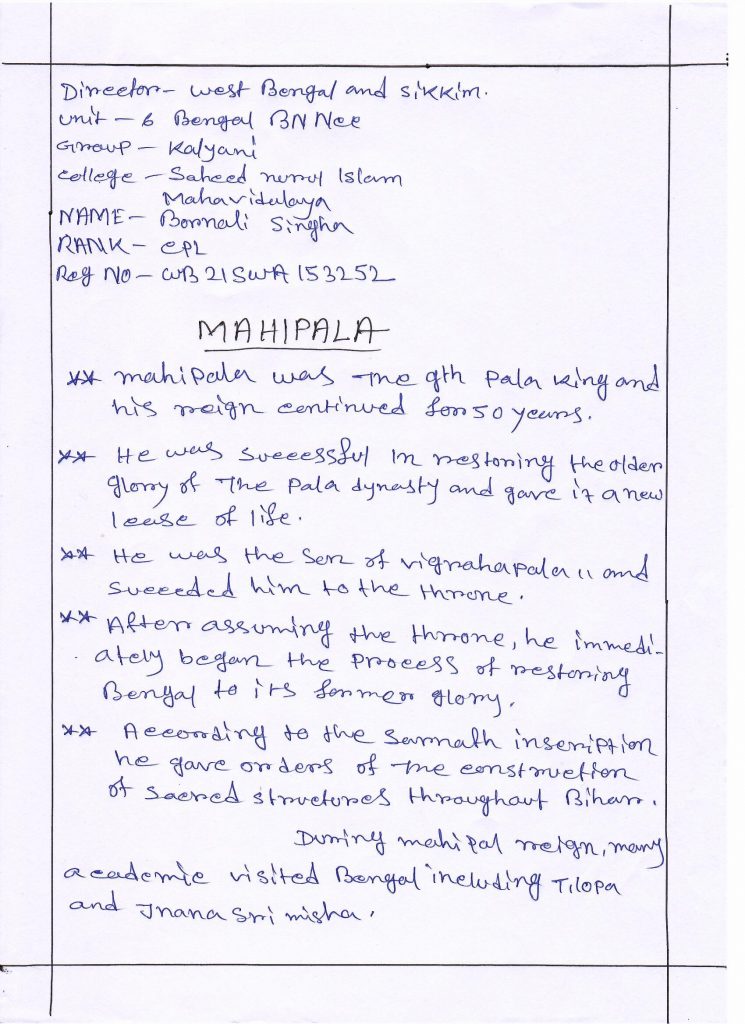 Director - West Bengal and Sikkim.
Unit - 6 Bengal BN Ncc
Group - Kalyani
College - Saheed nurul Islam
Mahavidulaya
NAME - Bornali Singha
RANK - CPL
Reg No - WB21SWA153252
MAHIPALA
** Mahipala was the 9th Pala King and
his reign continued for 50 years.
** He was successful in restoring the older
glory of The Pala dynasty and gave it a new
lease of life.
** He was the Son of vigrahapala II and
succeded him to the throne.
** After assuming the throne, he immedi-
ately began the process of restoring
Bengal to its former glory.
** According to the Sarnath inscription
he gave orders of the construction
of sacred structures throughout Bihar.
During mahipal reign, many
academic visited Bengal including Tilopa
and Jnana Sri misha.